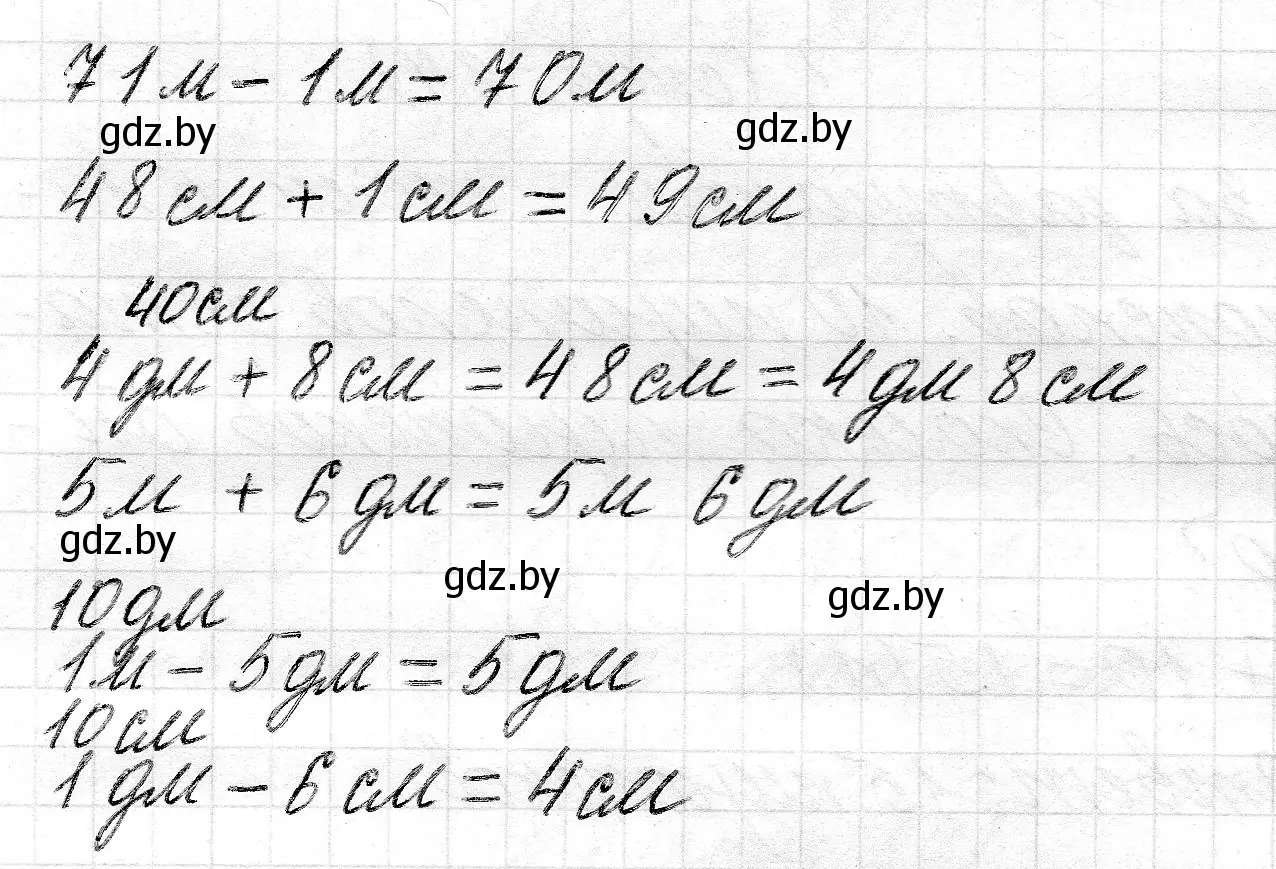 71м - 1м = 70м
gdz.by gdz.by
48см + 1см = 49см
40см
4дм + 8см = 48см = 4дм 8см
5м + 6дм = 5м 6дм
gdz.by gdz.by gdz.by
10дм
1м - 5дм = 5дм
10см
1дм - 6см = 4см